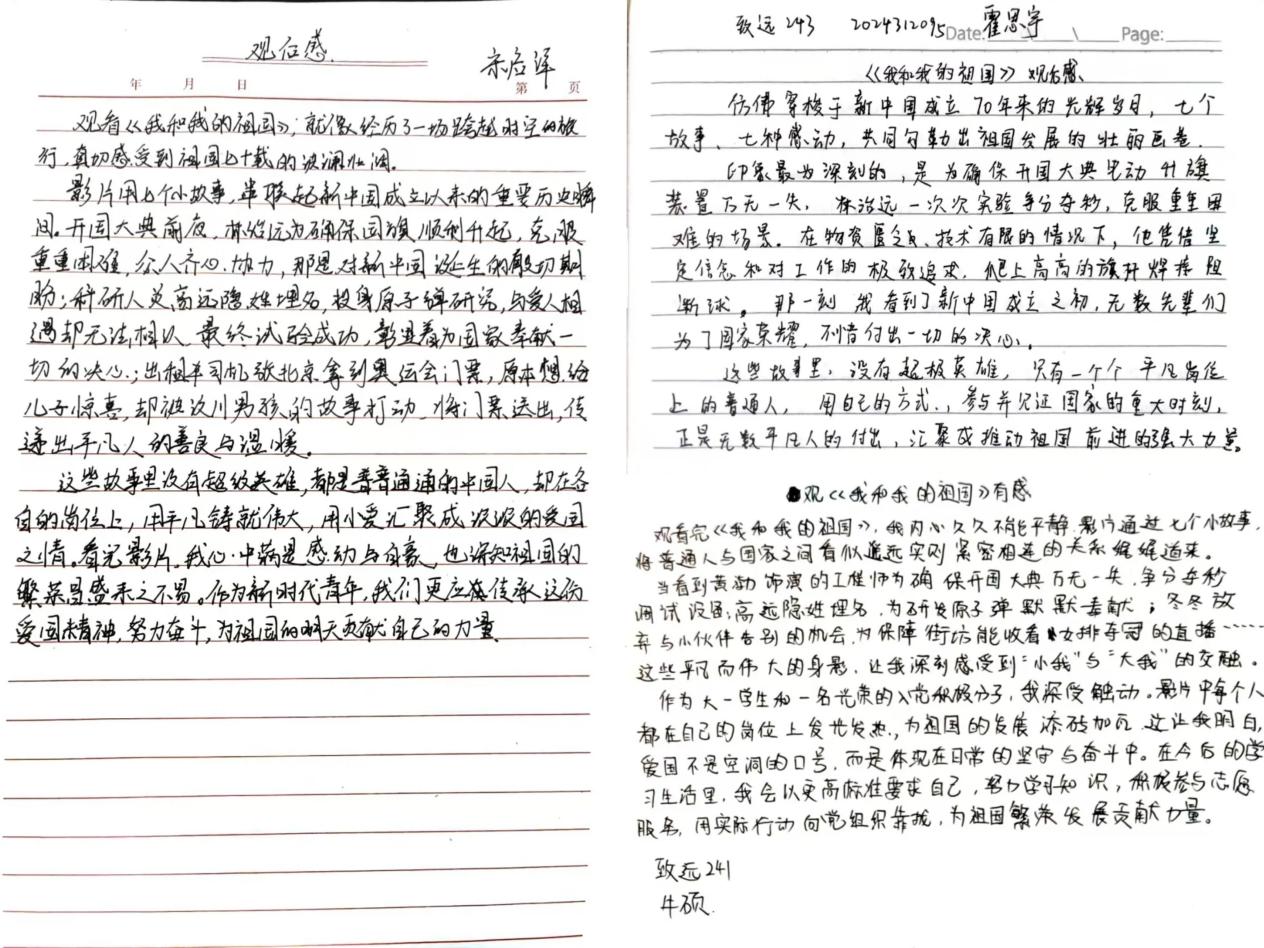 观后感
宋启泽
年 月 日
第 页
观看《我和我的祖国》,就像经历了一场跨越时空的旅
行,真切感受到祖国七十载的波澜壮阔。
影片用七个小故事,串联起新中国成立以来的重要历史瞬
间。开国大典前夜,林治远为确保国旗顺利升起,克服
重重困难,众人齐心协力,那是对新中国诞生的殷切期
盼;科研人员高远隐姓埋名,投身原子弹研究,与爱人相
遇却无法相认,最终试验成功,彰显着为国家奉献一
切的决心;出租车司机张北京拿到奥运会门票,原本想给
儿子惊喜,却被汶川男孩的故事打动,将门票送出,传
递出平凡人的善良与温暖。
这些故事里没有超级英雄,都是普普通通的中国人,却在各
自的岗位上,用平凡铸就伟大,用小爱汇聚成滚滚的爱国
之情。看完影片,我心中满是感动与自豪,也深知祖国的
繁荣昌盛来之不易。作为新时代青年,我们更应该传承这份
爱国精神,努力奋斗,为祖国的明天贡献自己的力量。
致远243 2024312095 霍思宇
Date: \ Page:
《我和我的祖国》观后感
仿佛穿梭于新中国成立70年来的光辉岁月,七个
故事、七种感动,共同勾勒出祖国发展的壮丽画卷.
印象最为深刻的,是为确保开国大典电动升旗
装置万无一失,林治远一次次实验争分夺秒,克服重重困
难的场景。在物资匮乏、技术有限的情况下,他凭借坚
定信念和对工作的极致追求,爬上高高的旗杆焊接阻
断球。那一刻我看到了新中国成立之初,无数先辈们
为了国家荣耀,不惜付出一切的决心.
这些故事里,没有超级英雄,只有一个个平凡岗位
上的普通人,用自己的方式,参与并见证国家的重大时刻,
正是无数平凡人的付出,汇聚成推动祖国前进的强大力量。
观《我和我的祖国》有感
观看完《我和我的祖国》,我内心久久不能平静.影片通过七个小故事,
将普通人与国家之间看似遥远实则紧密相连的关系娓娓道来。
当看到黄渤饰演的工程师为确保开国大典万无一失,争分夺秒
调试设备;高远隐姓埋名,为研发原子弹默默奉献;冬冬放
弃与小伙伴告别的机会,为保障街坊能收看女排夺冠的直播……
这些平凡而伟大的身影,让我深刻感受到“小我”与“大我”的交融。
作为大一学生和一名光荣的入党积极分子,我深受触动。影片中每个人
都在自己的岗位上发光发热,为祖国的发展添砖加瓦.这让我明白,
爱国不是空洞的口号,而是体现在日常的坚守与奋斗中。在今后的学
习生活里,我会以更高标准要求自己,努力学习知识,积极参与志愿
服务,用实际行动向党组织靠拢,为祖国繁荣发展贡献力量。
致远241
牛硕.